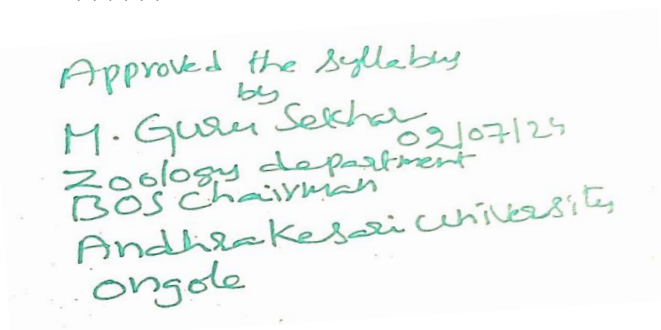 Approved the syllabus
by
M. Guru Sekhar
02/07/25
Zoology department
BOS Chairman
Andhrakesari University
Ongole